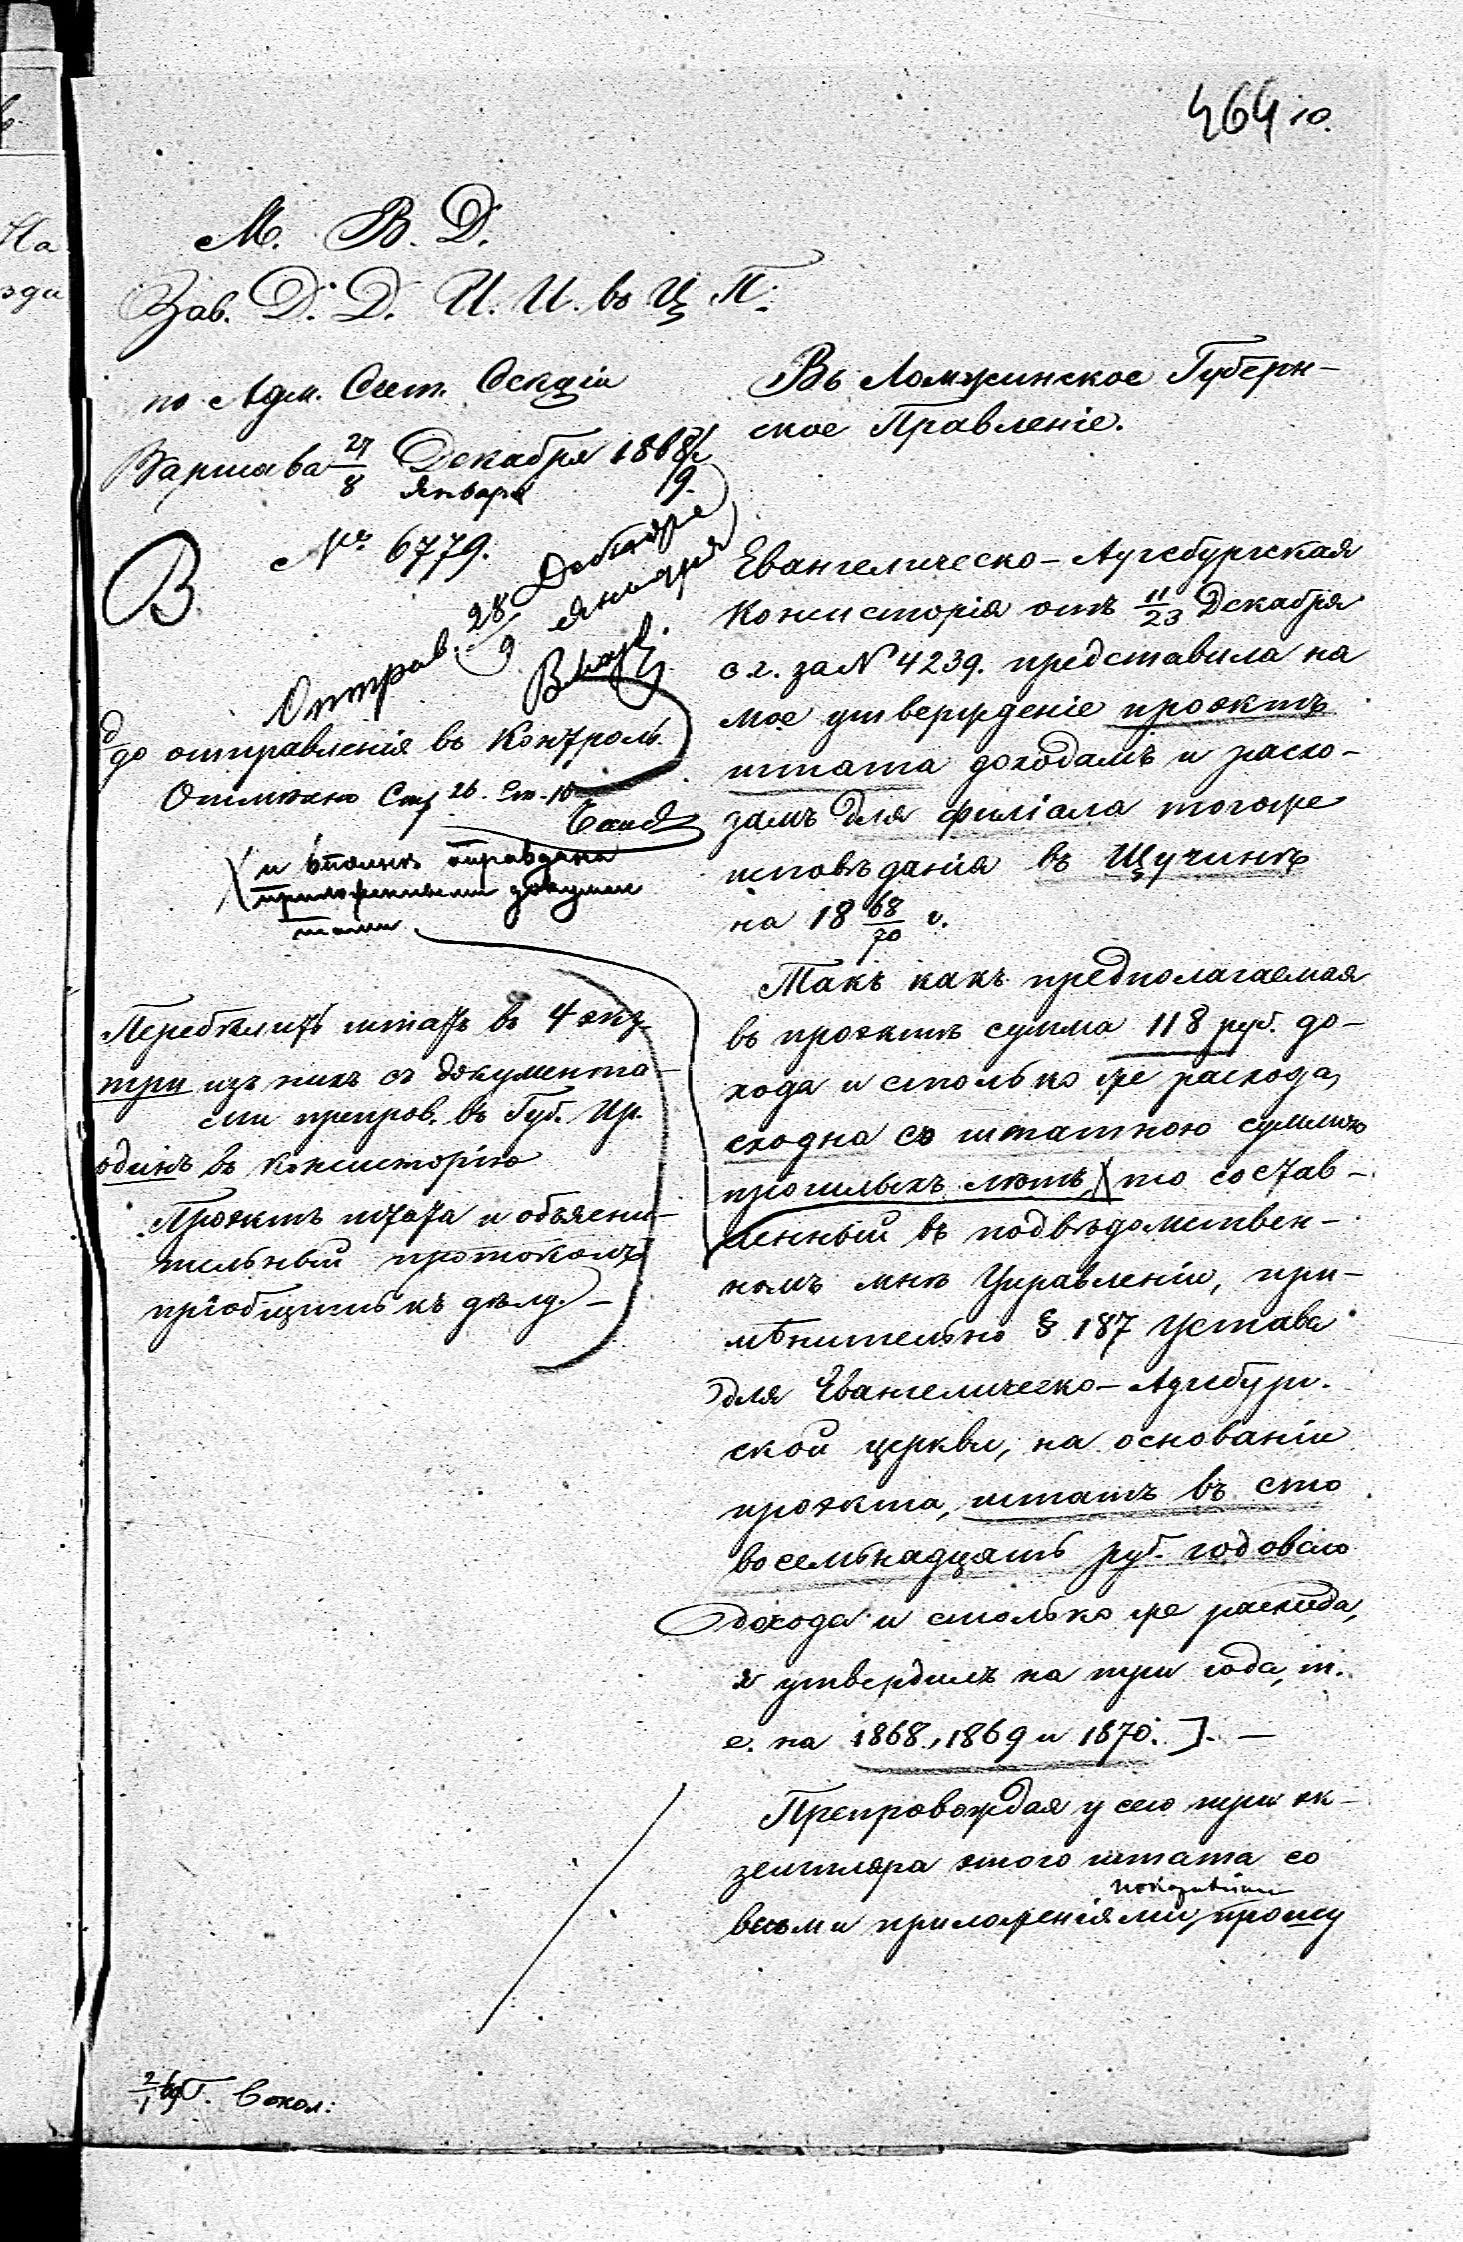 464 10.
М. В. Д.
Зав. Д. Д. И. И. въ Ц. П.
по Адм. Счет. Секціи
Варшава 27/8 Декабря Января 1868/9.
№ 6779.
В
Отправ. 28/9 Декабря Января
до отправленія въ Контроль.
Отмѣчено Стр 26. Ст. 10
и вполнѣ оправдана
приложенными докумен
тами
Перебѣлить штатъ въ 4 экз.
три изъ нихъ съ документа-
ми препров. въ Губ. Пр.
одинъ въ консисторію
Проэктъ штата и объясни-
тельный протоколъ
пріобщить къ дѣлу. —
Въ Ломжинское Губерн-
ское Правленіе.
Евангелическо-Аугсбургская
Консисторія отъ 11/23 Декабря
с. г. за № 4239. представила на
мое утвержденіе проэктъ
штата доходамъ и расхо-
дамъ для филіала тогоже
исповѣданія въ Щучинѣ
на 18 68/70 г.
Такъ какъ предполагаемая
въ проэктѣ сумма 118 руб. до-
хода и столько же расхода,
сходна со штатною суммою
прошлыхъ лѣтъ, то состав-
ленный въ подвѣдомствен-
номъ мнѣ Управленіи, при-
мѣнительно § 187 Устава
для Евангелическо-Аугсбург.
ской церкви, на основаніи
проэкта, штатъ въ сто
восемьнадцать руб. годоваго
дохода и столько же расхода,
я утвердилъ на три года, т.
е. на 1868, 1869 и 1870. ]. —
Препровождая у сего три эк-
земпляра этого штата со
всѣми приложеніями, прошу